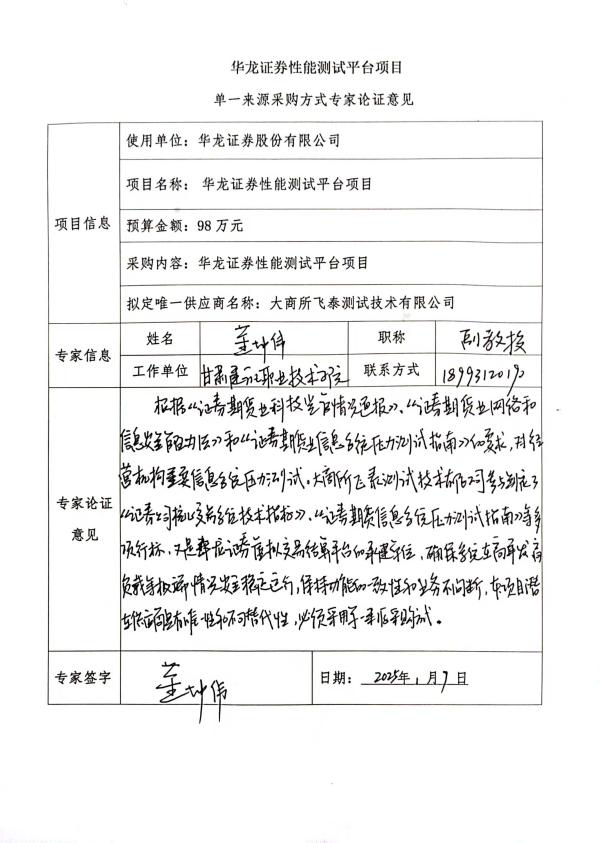 华龙证券性能测试平台项目
单一来源采购方式专家论证意见
项目信息
使用单位：华龙证券股份有限公司
项目名称： 华龙证券性能测试平台项目
预算金额：98 万元
采购内容：华龙证券性能测试平台项目
拟定唯一供应商名称：大商所飞泰测试技术有限公司
专家信息
姓名 董坤伟 职称 副教授
工作单位 甘肃建筑职业技术学院 联系方式
专家论证意见
根据《证券期货业科技监管情况通报》、《证券期货业网络和
信息安全管理办法》和《证券期货业信息系统压力测试指南》的要求，对经
营机构重要信息系统压力测试。大商所飞泰测试技术有限公司参与制定了
《证券公司核心交易系统技术指标》、《证券期货信息系统压力测试指南》等多
项行标，又是证券模拟交易结算平台的承建单位，确保系统在高并发高
负载等极端情况安全稳定运行，保持功能的一致性和业务不间断，本项目潜
在供应商具有唯一性和不可替代性，必须采用单一来源采购方式。
专家签字 董坤伟 日期： 2025年1月9日